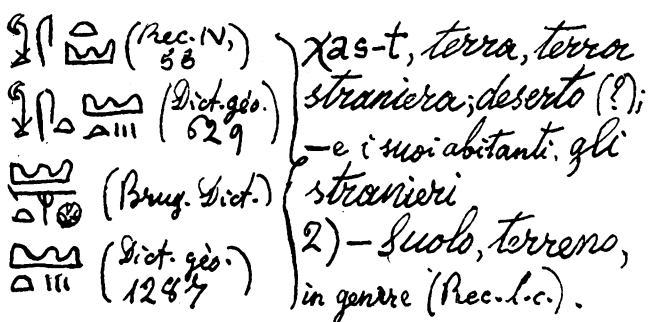 𓆼𓋴𓏏𓈉 (Rec. IV,
58)
𓆼𓋴𓏏𓈉𓏏𓏥 (Dict. géo.
629)
(Brug. Dict.)
𓈉𓏏𓏥 (Dict. géo.
1287)
χas-t, terra, terra
straniera; deserto (?);
— e i suoi abitanti. gli
stranieri
2) — Suolo, terreno,
in genere (Rec. l. c.).